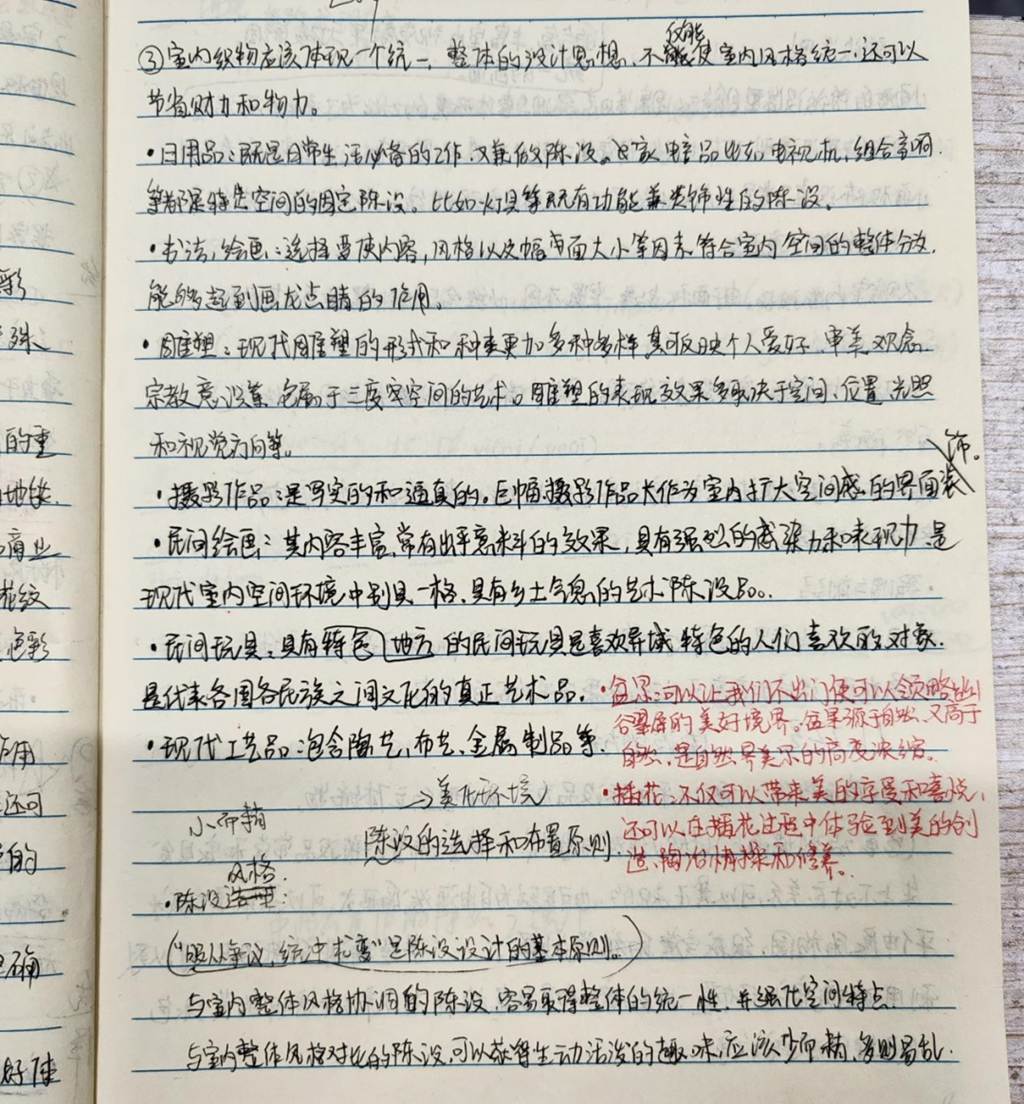 ③室内织物应该体现一个统一、整体的设计思想,不仅能使室内风格统一,还可以
节省财力和物力。
·日用品:既是日常生活必备的工作,又兼做陈设。大家电产品比如,电视机,组合音响
等都是特定空间的固定陈设。比如灯具等既有功能兼装饰性的陈设。
·书法,绘画:选择要使内容,风格以及幅面大小等因素,符合室内空间的整体分
能够起到画龙点睛的作用。
·雕塑:现代雕塑的形式和种类更加多种多样,其可反映个人爱好、审美观念
宗教意识等,它属于三度空间的艺术。雕塑的表现效果多取决于空间、位置、光照
和视觉方向等。
·摄影作品:是写实的和逼真的。巨幅摄影作品常作为室内扩大空间感的界面装饰。
·民间绘画:其内容丰富,常有出乎意料的效果,具有强烈的感染力和表现力,是
现代室内空间环境中别具一格,具有乡土气息的艺术陈设品。
·民间玩具:具有特色地方的民间玩具是喜欢异域特色的人们喜欢的对象.
是代表各国各民族之间文化的真正艺术品。
·盆景:可以让我们不出门便可以领略
的美好境界。盆景源于自然,又高于
自然,是自然界美景的高度浓缩。
·现代工艺品:包含陶艺,布艺,金属制品等.
·插花:不仅可以带来美的享受和喜悦,
还可以在插花过程中体验到美的创
造,陶冶情操和修养。
→美化环境
小而精
陈设的选择和布置原则
·陈设风格:
("服从争议,统中求变"是陈设设计的基本原则。)
与室内整体风格协调的陈设,容易取得整体的统一性,并强化空间特点
与室内整体风格对比的陈设,可以获得生动活泼的趣味,应该少而精,多则易乱.
彩
殊
的重
地毯
商业
花纹
色彩
作用
还可
的
确
好住